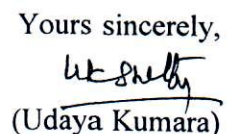 Yours sincerely,
(Udaya Kumara)